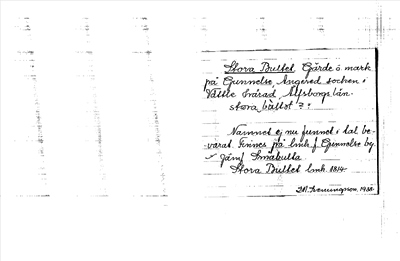 Stora Bultet Gärde å mark
på Gunnelse, Angered socken i
Vättle härad Älfsborgs län.
stora bältet ? :
Namnet ej nu funnet i tal be-
varat. Finnes på lmk f Gunnelse by
Jämf Småbulta
Stora Bultet lmk. 1814